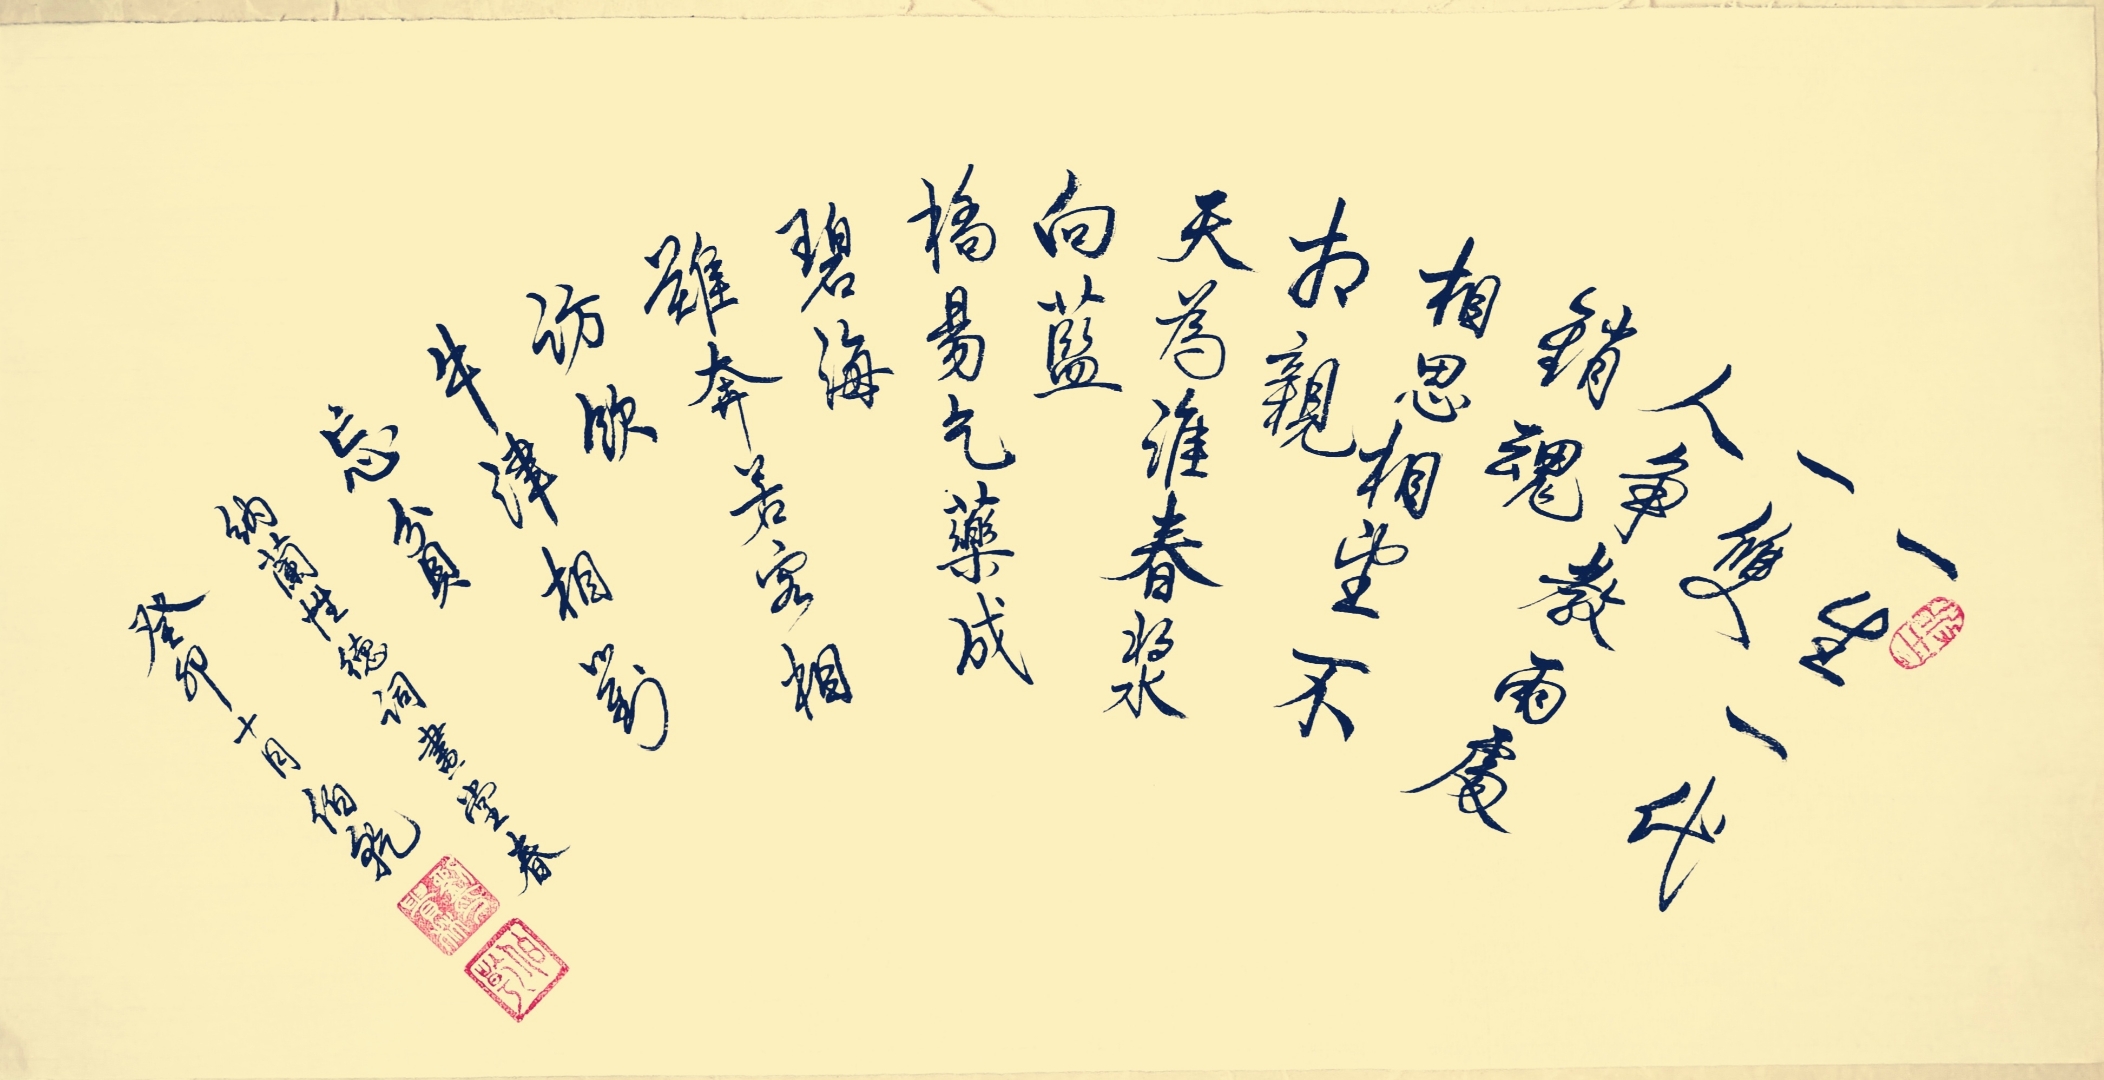 一生一代
一雙
人爭教兩處
銷魂
相思相望不
相親
天為誰春漿
向藍
橋易乞藥成
碧海
難奔若容相
訪飲
牛津相對
忘貧
納蘭性德詞畫堂春
癸卯十月伯乾